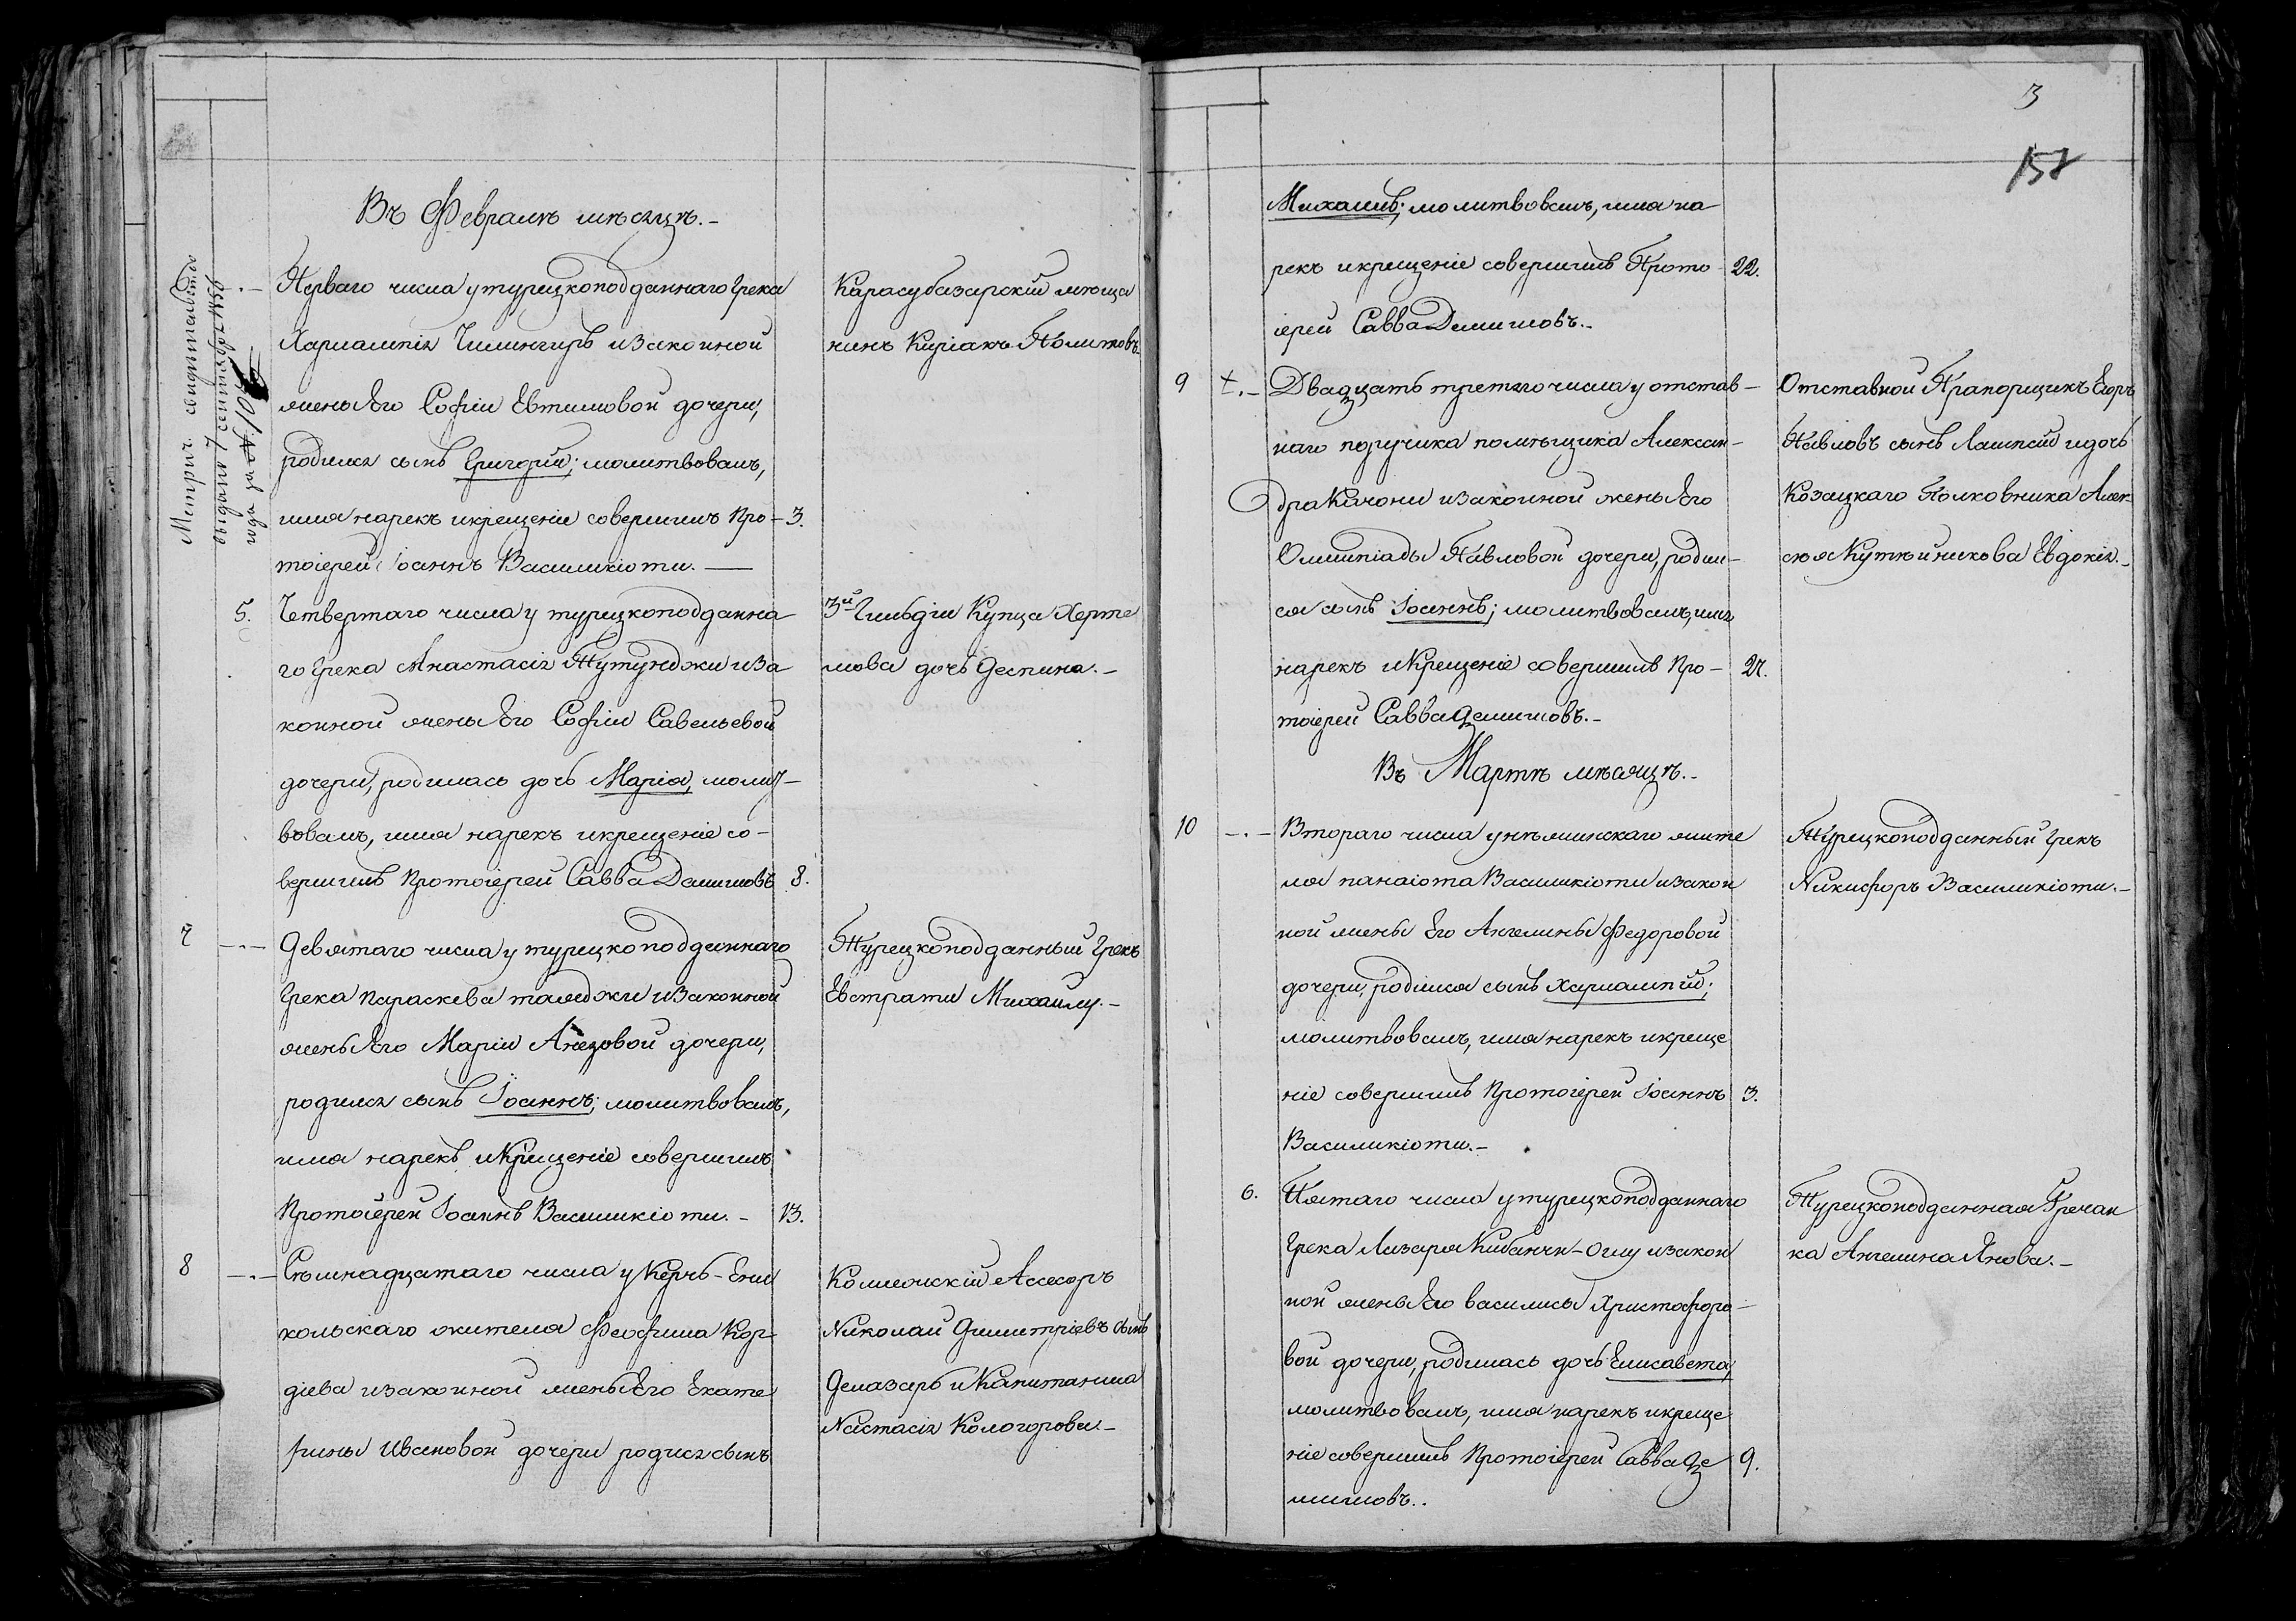 Въ Февралѣ мѣсяцѣ.-
Метрич. свидѣтельство
выдано 7 сентября 1856
года за №
6 .- Перваго числа у турецкоподданнаго Грека
Харлампія Чилингирь и законной
жены Его Софіи Евтимовой дочери,
родился сынъ Григорій; молитвовалъ,
имя нарекъ и крещеніе совершилъ Про- 3.
тоіерей Іоаннъ Василикіоти.
Карасубазарскій мѣща
нинъ Киріакъ Политовъ.
5. Четвертаго числа у турецкоподданна
го Грека Анастасія Тутунджи и за
конной жены Его Софіи Савельевой
дочери, родилась дочь Марія, молит-
вовалъ, имя нарекъ и крещеніе со-
вершилъ Протоіерей Савва Демишовъ 8.
3й Гильдіи Купца Харте
мова дочь Деспина.-
7 -.- Девятаго числа у турецкоподданнаго
Грека Параскева таледжи и законной
жены Его Маріи Анезовой дочери,
родился сынъ Іоаннъ; молитвовалъ,
имя нарекъ и Крещеніе совершилъ
Протоіерей Іоаннъ Василикіоти.- 13.
Турецкоподданный Грекъ
Евстрати Михаилу.-
8 -.- Сѣмнадцатаго числа у Керчь-Ени
кольскаго жителя Феофила Кор-
діева и законной жены Его Екате
рины Ивановой дочери родился сынъ
Коллежскій Ассесоръ
Николай Димитріевъ сынъ
Делазарь и Капитанша
Настасія Кологорова.-
3
Михаилъ; молитвовалъ, имя на
рекъ и крещеніе совершилъ Прото- 22.
іерей Савва Демишовъ.-
9 +.- Двадцать третяго числа у отстав-
наго поручика помѣщика Алексан-
дра Качони и законной жены Его
Олимпіады Павловой дочери, родил-
ся сынъ Іоаннъ; молитвовалъ, имя
нарекъ и Крещеніе совершилъ Про- 27.
тоіерей Савва Демишовъ.-
Отставной Прапорщикъ Егоръ
Павловъ сынъ Лампси и дочь
Козацкаго Полковника Алек
сѣя Кутѣйникова Евдокія.-
Въ Мартѣ мѣсяцѣ.-
10 -.- Втораго числа у нѣжинскаго жите
ля панаіота Василикіоти и закон
ной жены Его Ангелины Федоровой
дочери, родился сынъ Харлампій;
молитвовалъ, имя нарекъ и креще
ніе совершилъ Протоіерей Іоаннъ 3.
Василикіоти.-
Турецкоподданный Грекъ
Никифоръ Василикіоти.-
6. Пятаго числа у турецкоподданнаго
Грека Лазаря Кибанчи-Оглу и закон
ной жены Его василисы Христофоро-
вой дочери, родилась дочь Елисавета,
молитвовалъ, имя нарекъ и креще
ніе совершилъ Протоіерей Савва Де 9.
мишовъ..
Турецкоподданная Гречан
ка Ангелина Янова.-